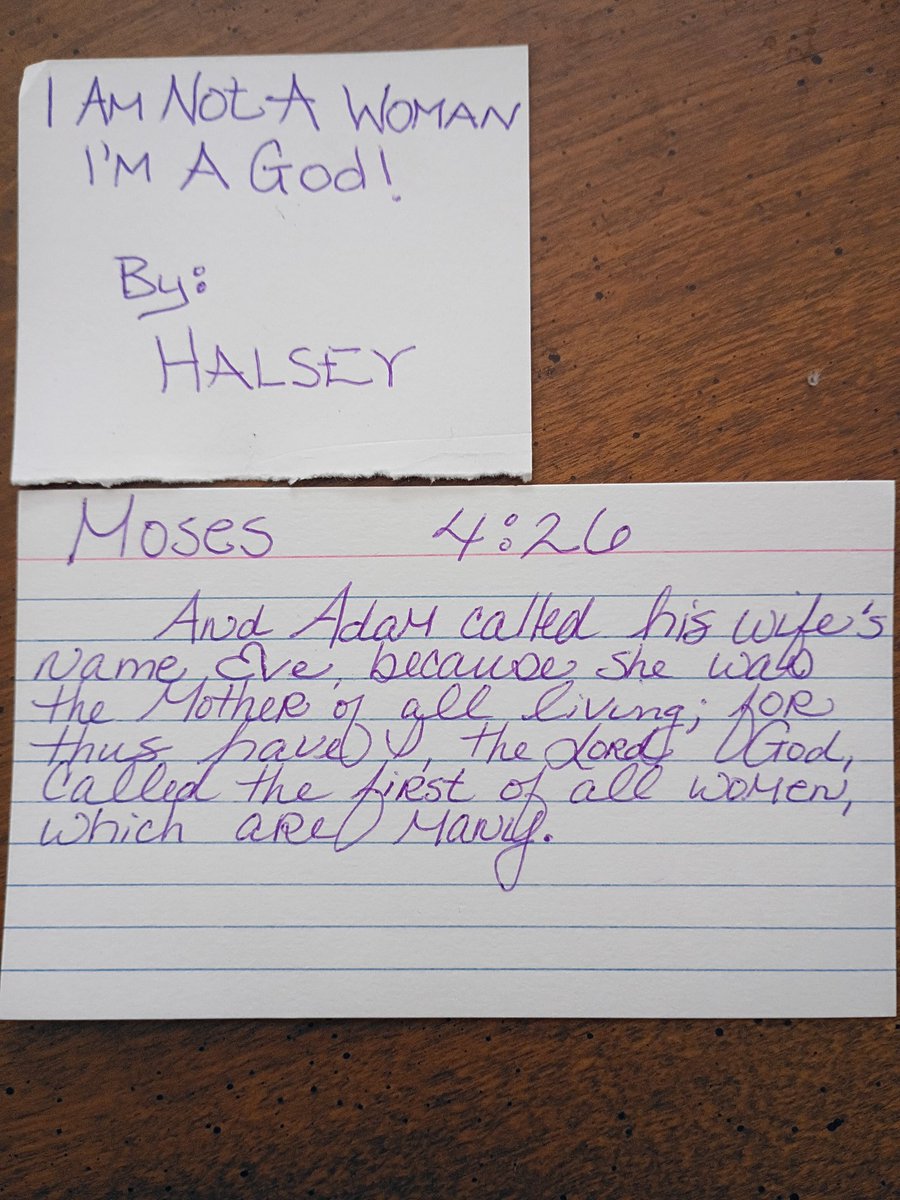 I AM NOT A WOMAN
I'M A GOD!
By:
HALSEY
Moses 4:26
And Adam called his wife's
name Eve, because she was
the Mother of all living; for
thus have I, the Lord God,
Called the first of all women,
which are many.